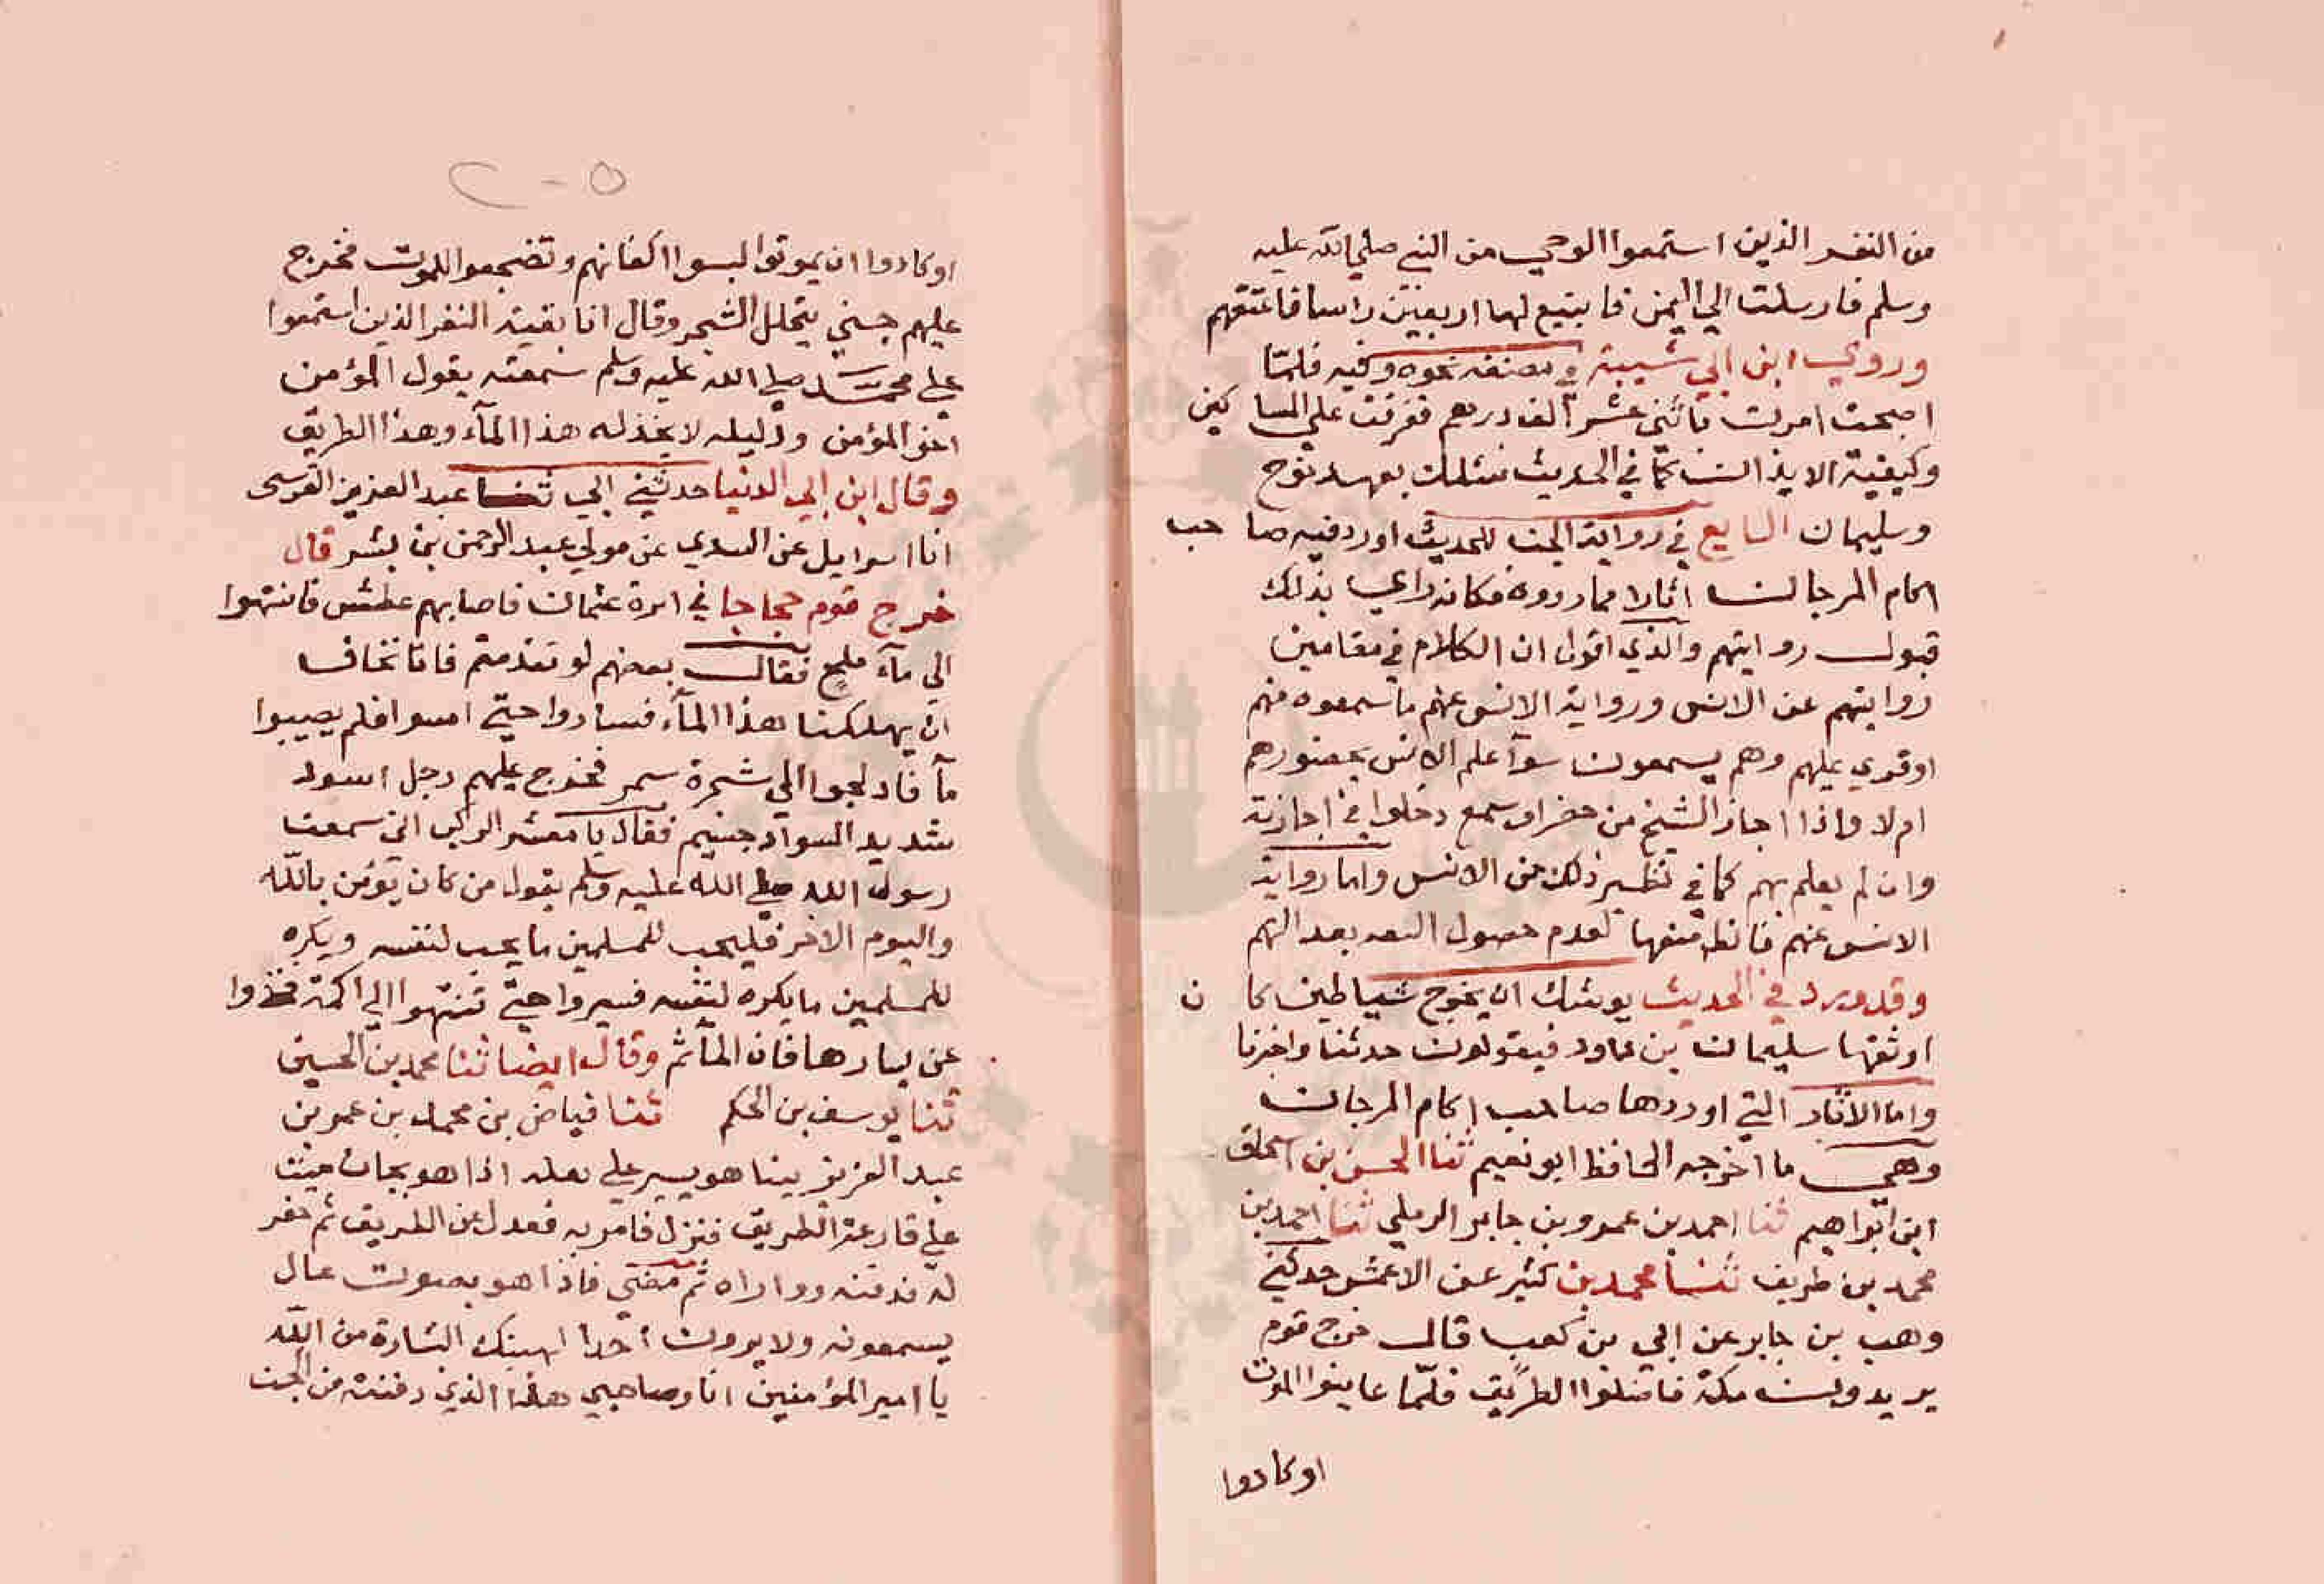 من النفر الذين استمعوا الوحي من النبي صلي الله عليه
وسلم فارسلت الي اليمن فابتيع لها اربعين راسا فاعتقهم
وروي ابن ابي شيبة في مصنفه نحوه وفيه فلما
اصبحت امرت باثني عشر الف درهم ففرقت علي المساكين
وكيفية الايذان كما في الحديث نسئلك بعهد نوح
وسليمان السابع في رواية الجن للحديث اورد فيه صاحب
اكام المرجان اثارا مما رووه فكانه راي بذلك
قبول روايتهم والذي اقول ان الكلام في مقامين
روايتهم عن الانس ورواية الانس عنهم ما سمعوه منهم
او قري عليهم وهم يسمعون سوآ علم الانس بحضورهم
ام لا واذا اجاز الشيخ من حضر او سمع دخلوا في اجازته
وان لم يعلم بهم كما في نظير ذلك من الانس واما رواية
الانس عنهم فالظ منعها لعدم حصول الثقه بعدالتهم
وقد ورد في الحديث يوشك ان يخرج شياطين كان
اوثقها سليمان بن داود فيقولون حدثنا واخبرنا
واما الاثار التي اوردها صاحب اكام المرجان
وهي ما اخرجه الحافظ ابو نعيم ثنا الحسن بن اسحاق
ابن ابراهيم ثنا احمد بن عمرو بن جابر الرملي ثنا احمد بن
محمد بن طريف ثنا محمد بن كثير عن الاعمش حدثني
وهب بن جابر عن ابي بن كعب قال خرج قوم
يريدون مكة فاضلوا الطريق فلما عاينوا الموت
اوكادوا
٢٠٥
اوكادوا ان يموتوا لبسوا اكفانهم وتضجعوا للموت فخرج
عليهم جني يتخلل الشجر وقال انا بقية النفر الذين استمعوا
علي محمد صلي الله عليه وسلم سمعته يقول المؤمن
اخو المؤمن ودليله لا يخذله هذا المآء وهذا الطريق
وقال ابن ابي الدنيا حدثني ابي ثنا عبد العزيز القرسى
انا اسرايل عن السدي عن مولي عبد الرحمن بن بشر قال
خرج قوم حجاجا في امرة عثمان فاصابهم عطش فانتهوا
الي مآء ملح فقال بعضهم لو تقدمتم فانا نخاف
ان يهلكنا هذا المآء فساروا حتي امسوا فلم يصيبوا
مآ فادلجوا الي شجرة سمر فخرج عليهم رجل اسود
شديد السواد جسيم فقال يا معشر الركب اني سمعت
رسول الله صلي الله عليه وسلم يقول من كان يؤمن بالله
واليوم الاخر فليحب للمسلمين ما يحب لنفسه ويكره
للمسلمين ما يكره لنفسه فسيروا حتي تنتهوا الي اكمة فخذوا
عن يسارها فان المآ ثم وقال ايضا ثنا محمد بن الحسين
ثنا يوسف بن الحكم ثنا فياض بن محمد بن عمر بن
عبد العزيز بينا هو يسير علي بغلة اذا هو بجان ميت
علي قارعة الطريق فنزل فامر به فعدل عن الطريق ثم حفر
له فدفنه وواراه ثم مضي فاذا هو بصوت عال
يسمعونه ولا يرون احدا ليهنك البشارة من الله
يا امير المؤمنين انا وصاحبي هذا الذي دفنته من الجن